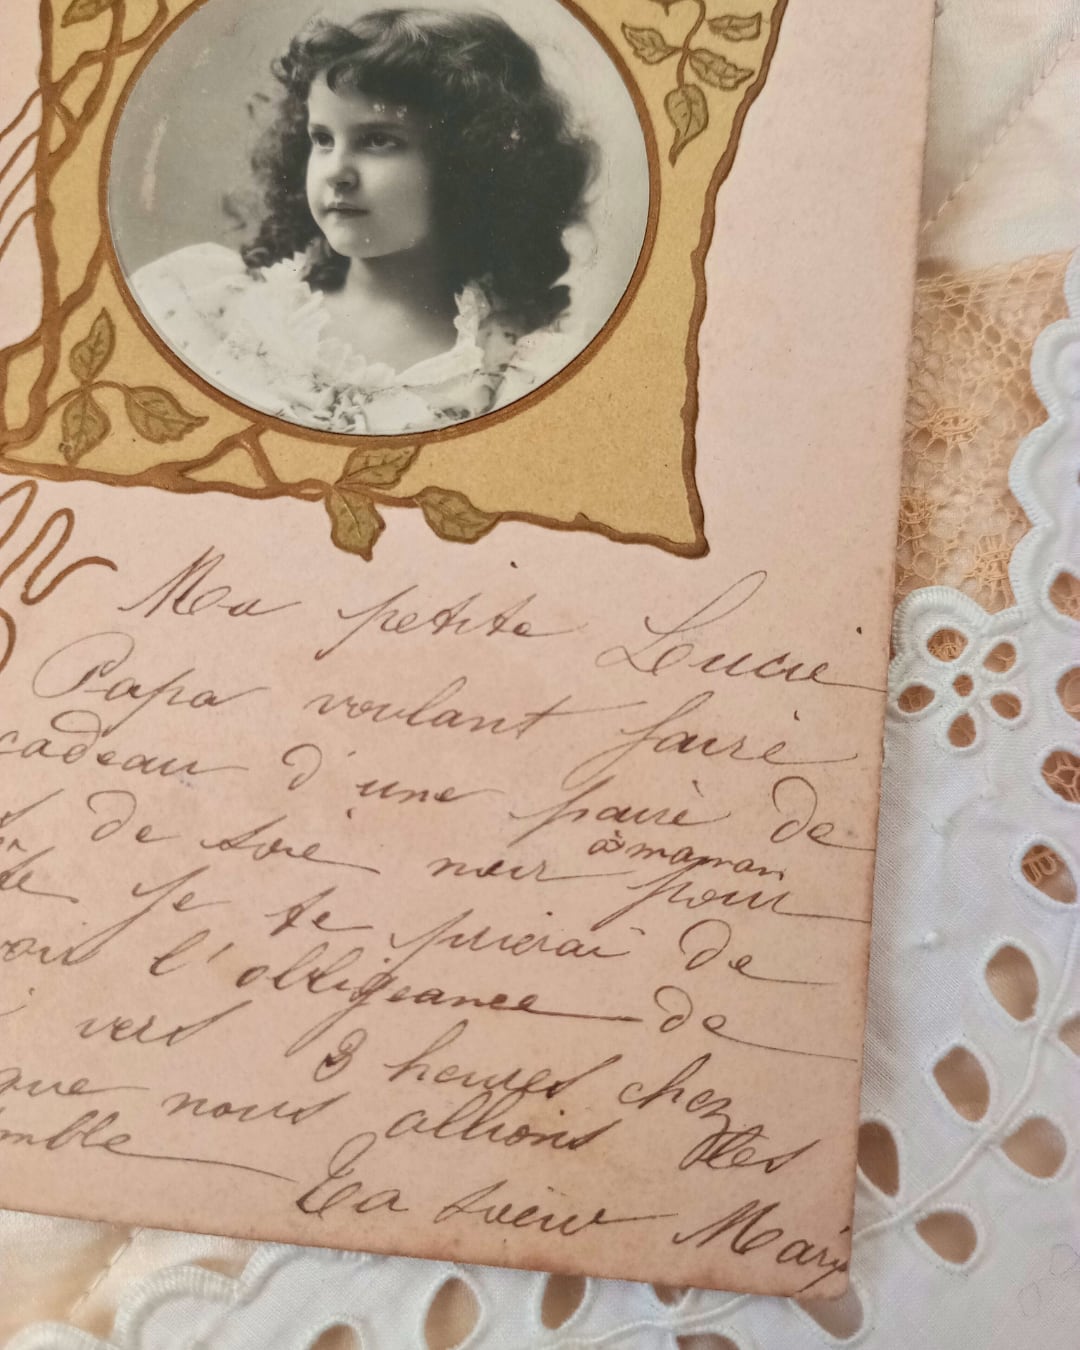 Ma petite Lucie
Papa voulant faire
cadeau d'une paire de
de soie noir pour
à maman
je te prierai de
l'obligeance de
vers 3 heures chez
que nous allions les
Ta soeur Mary